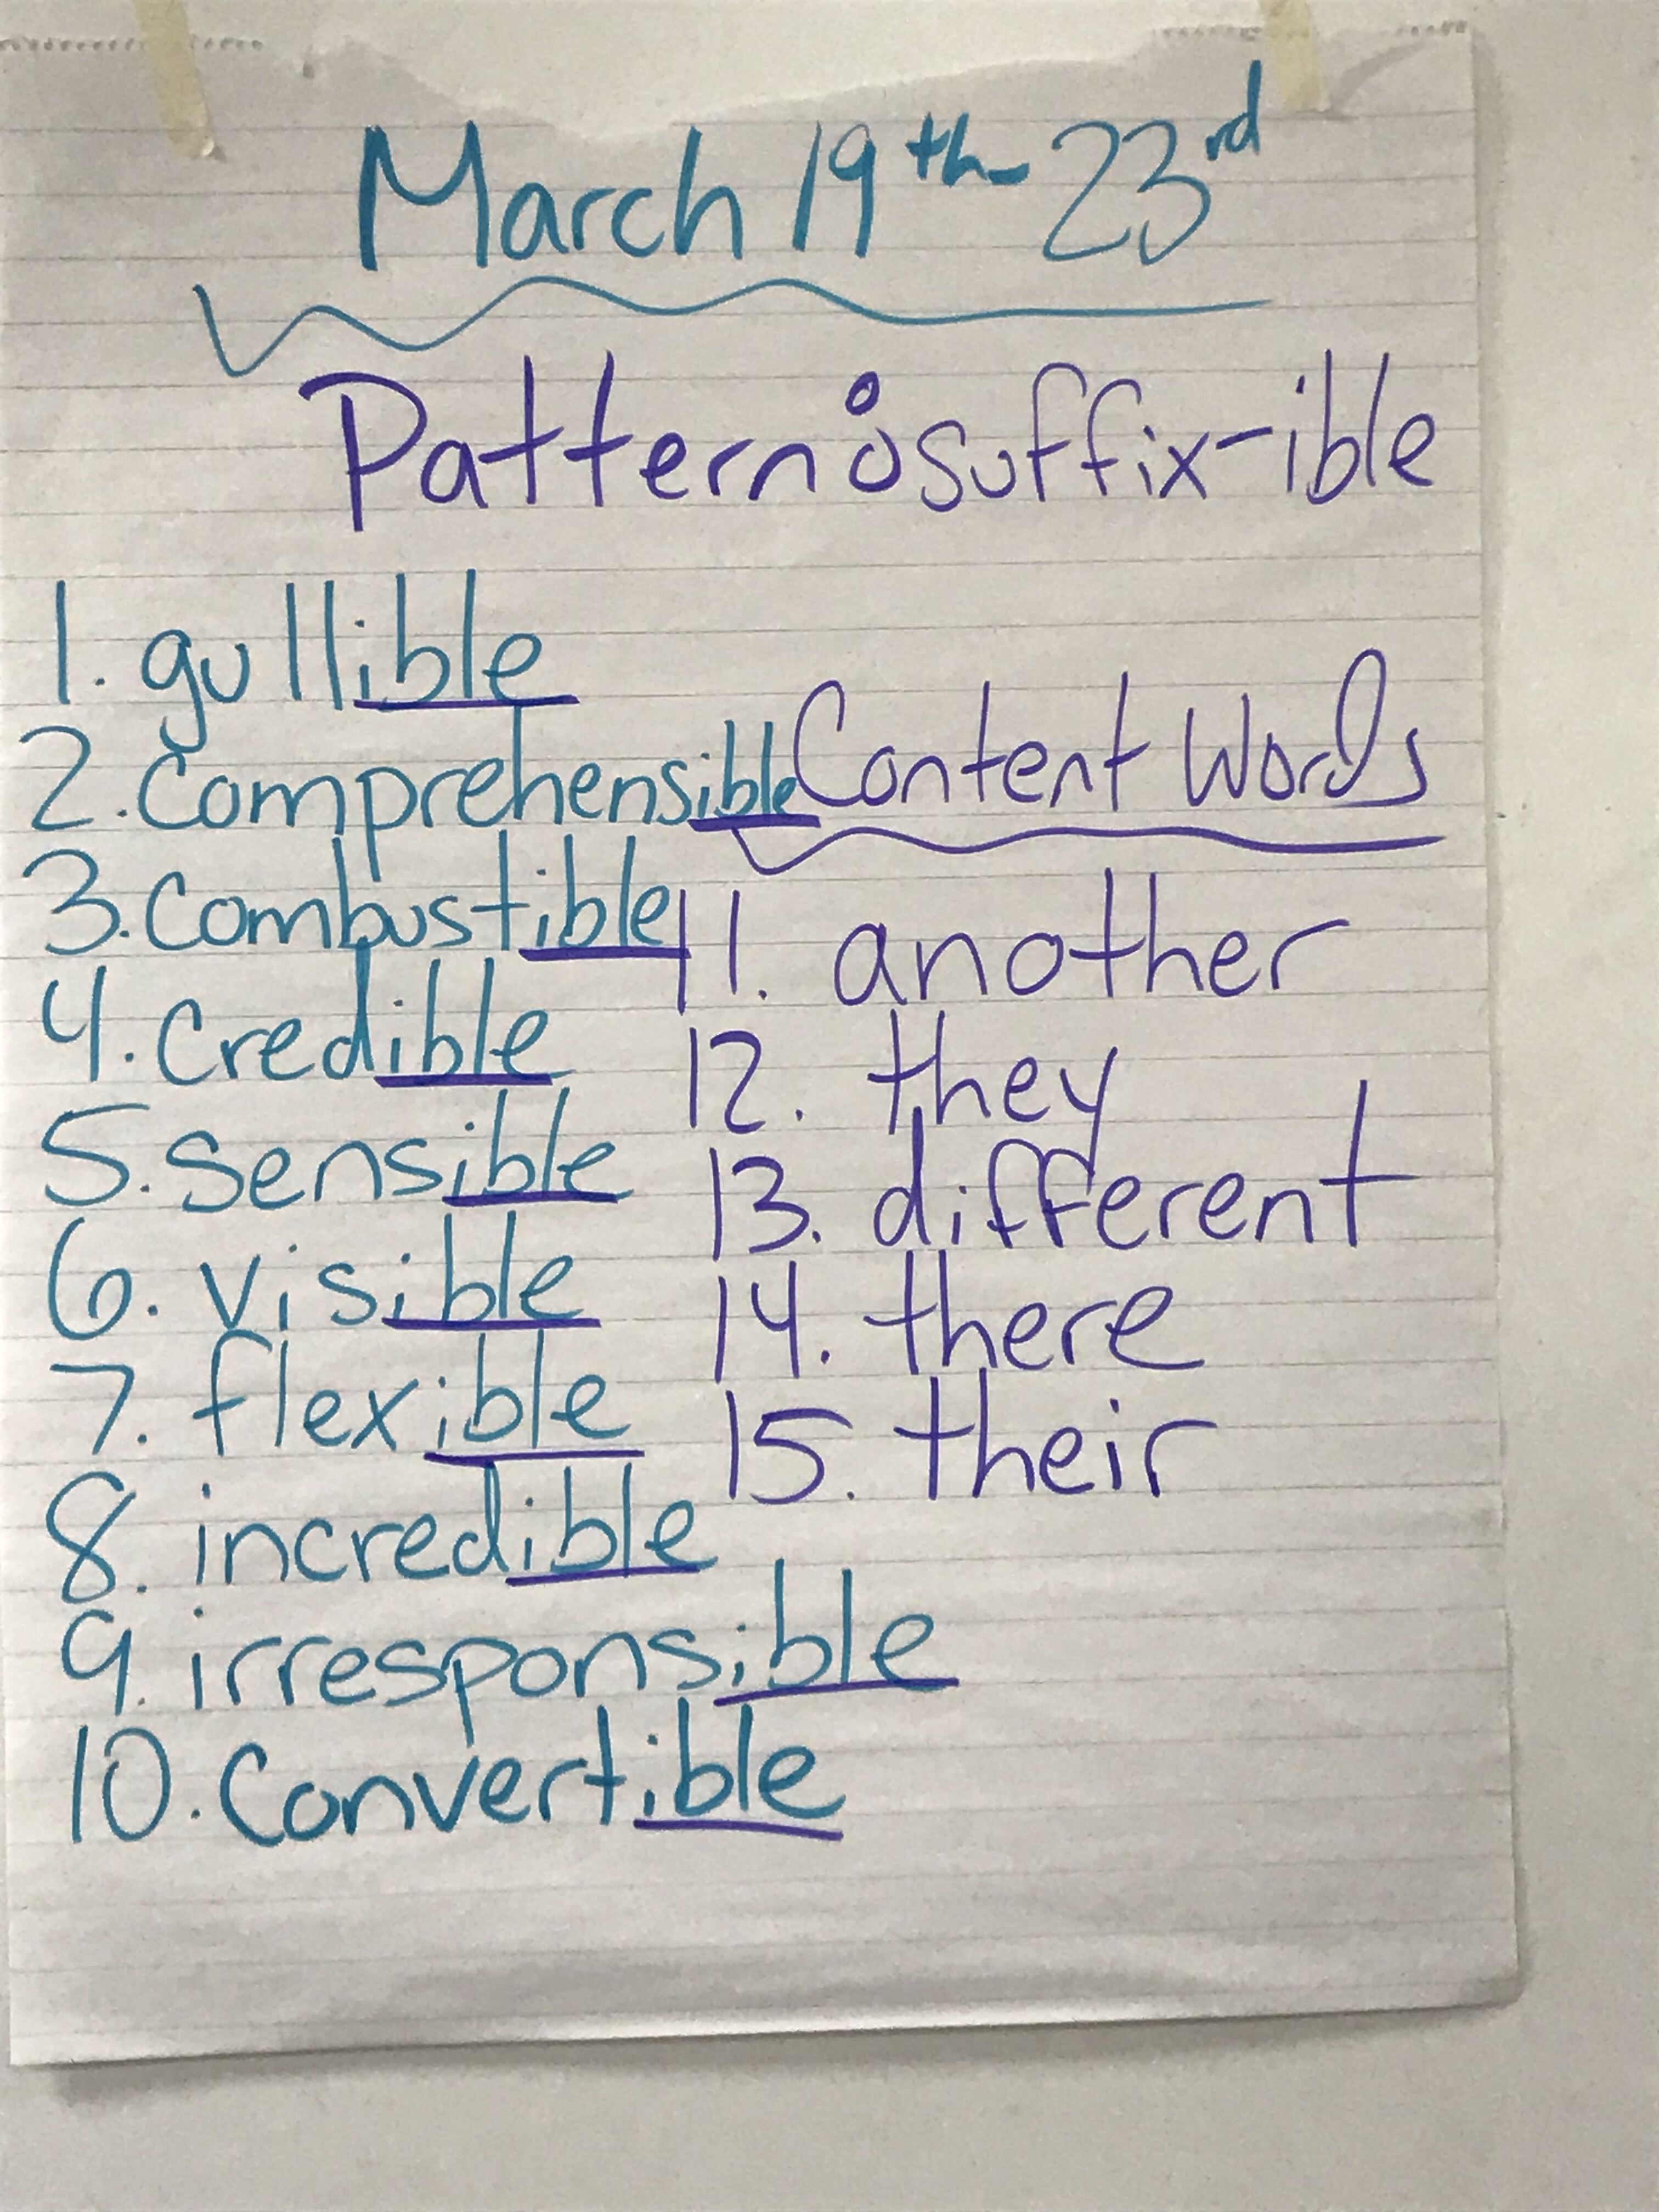 March 19th-23rd
Pattern: suffix-ible
1. gullible
2. Comprehensible
3. Combustible
4. Credible
5. Sensible
6. visible
7. flexible
8. incredible
9. irresponsible
10. Convertible
Content Words
11. another
12. they
13. different
14. there
15. their